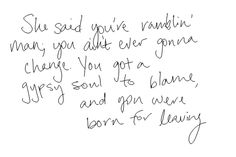 She said you're ramblin'
man, you aint ever gonna
change. You got a
gypsy soul to blame,
and you were
born for leaving